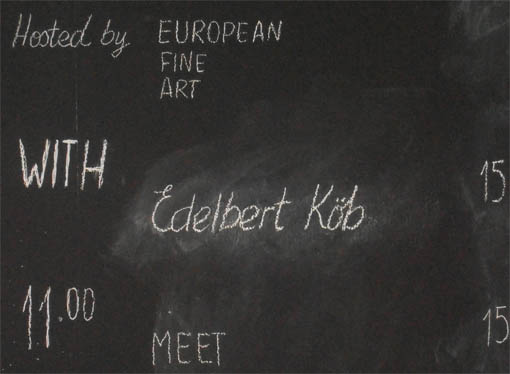 Hosted by EUROPEAN
FINE
ART
WITH
15
Edelbert Köb
11.00
15
MEET